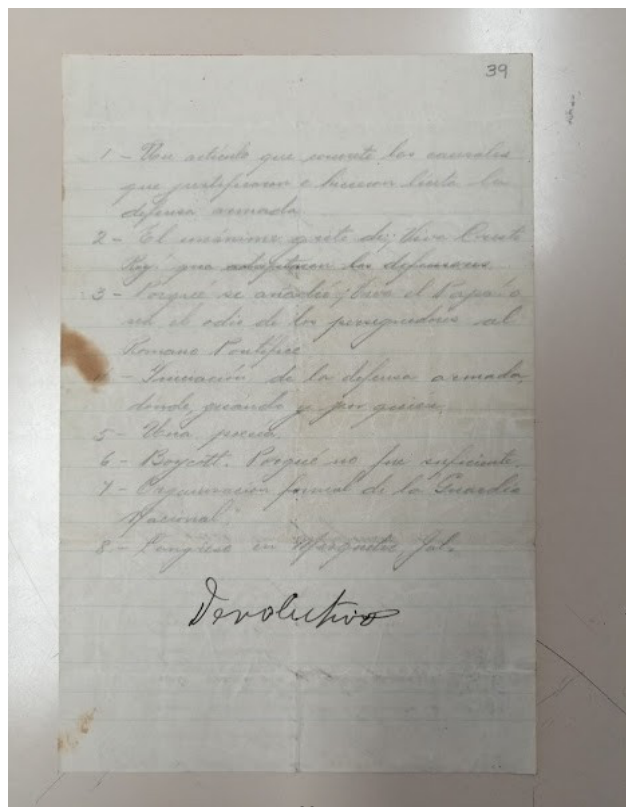 39
1 - Un artículo que comente las causales
que justificaron e hicieron lícita la
defensa armada
2 - El unánime grito de ¡Viva Cristo
Rey! que adoptaron los defensores.
3 - Porqué se añadió ¡Viva el Papa! o
sea el odio de los perseguidores al
Romano Pontífice
4 - Iniciación de la defensa armada,
donde, cuándo y por quién.
5 - Una poesía.
6 - Boycott. Porqué no fue suficiente.
7 - Organización formal de la Guardia
Nacional.
8 - Congreso en Mezquitic, Jal.
Devolutivo